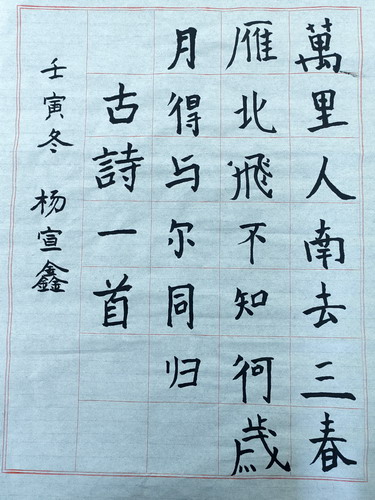 萬里人南去三春
雁北飛不知何歳
月得与尔同归
古詩一首
壬寅冬 杨宣鑫